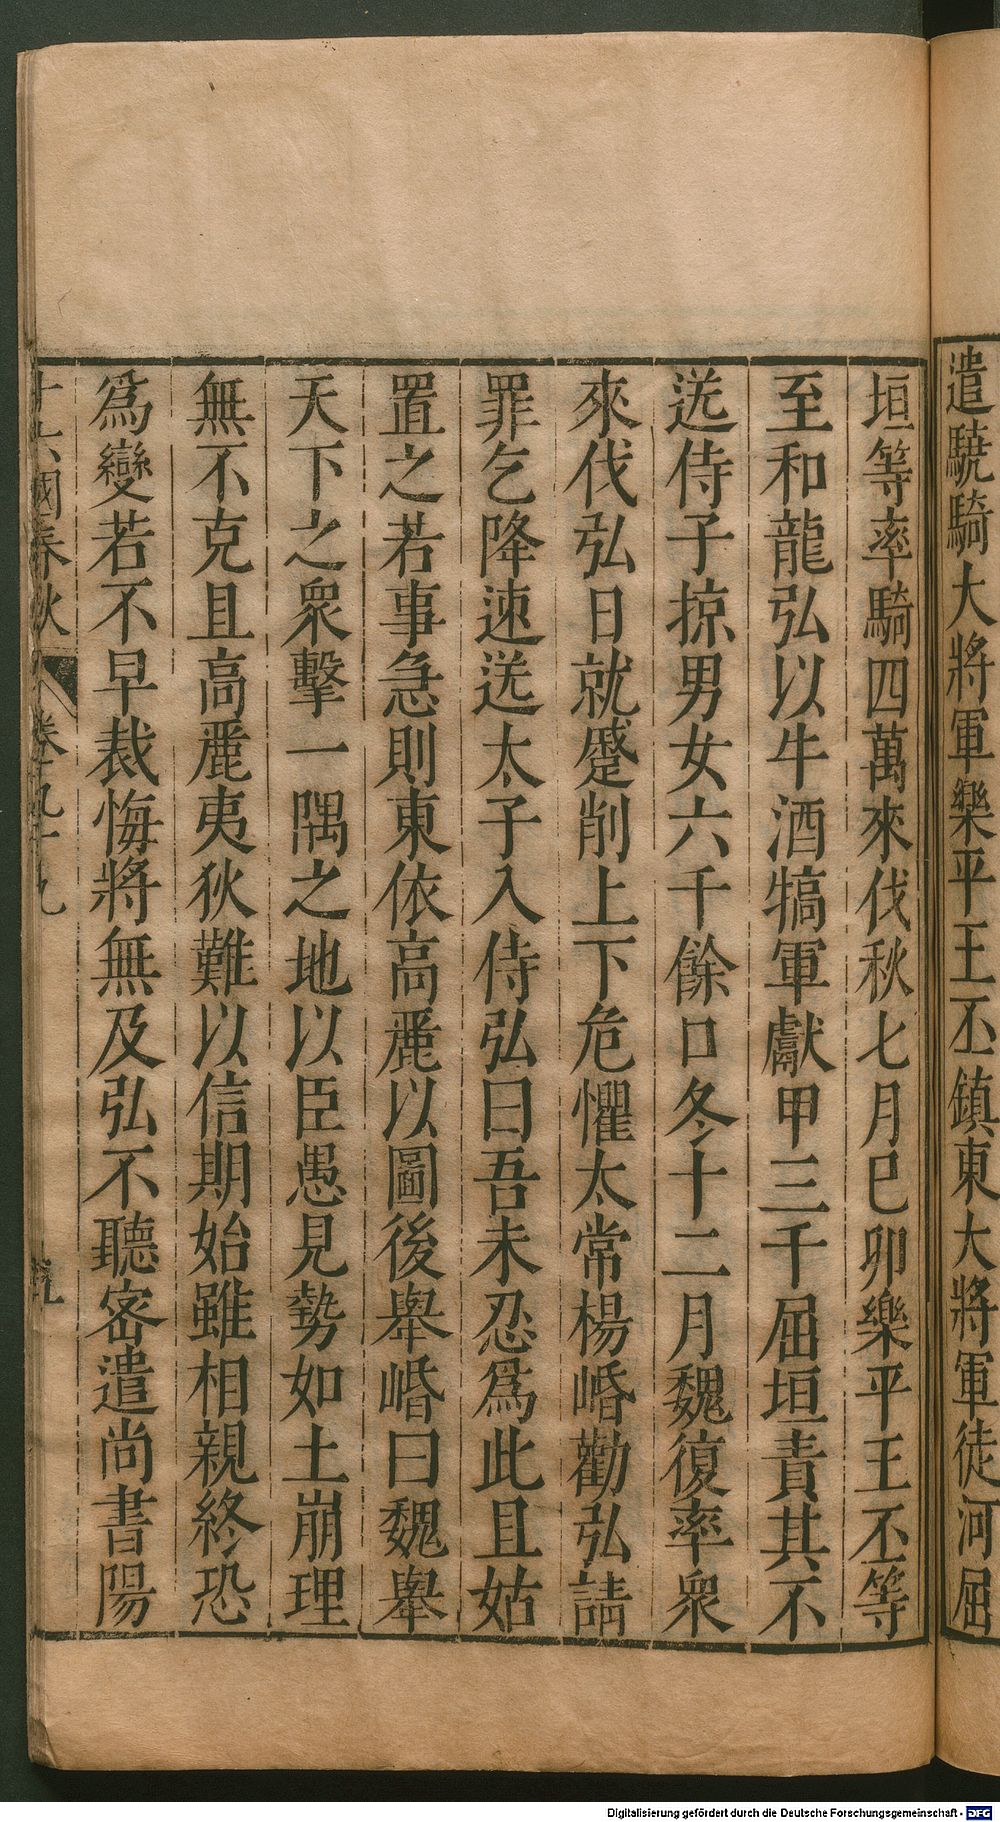 遣驍騎大將軍樂平王丕鎮東大將軍徒河屈
垣等率騎四萬來伐秋七月巳卯樂平王丕等
至和龍弘以牛酒犒軍獻甲三千屈垣責其不
送侍子掠男女六千餘口冬十二月魏復率衆
來伐弘日就蹙削上下危懼太常楊㟭勸弘請
罪乞降速送太子入侍弘曰吾未忍爲此且姑
置之若事急則東依高麗以圖後舉㟭曰魏舉
天下之衆擊一隅之地以臣愚見勢如土崩理
無不克且高麗夷狄難以信期始雖相親終恐
爲變若不早裁悔將無及弘不聽密遣尚書陽
十六國春秋 卷九十九
Digitalisierung gefördert durch die Deutsche Forschungsgemeinschaft - DFG